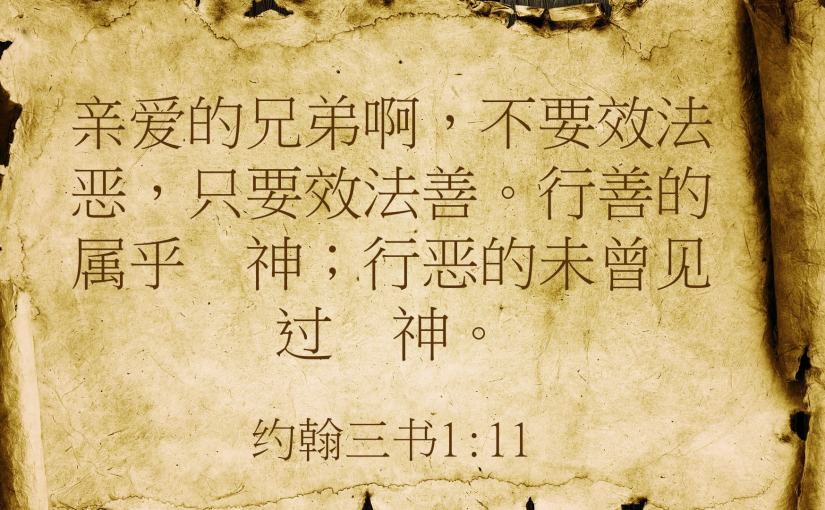 亲爱的兄弟啊，不要效法
恶，只要效法善。行善的
属乎　神；行恶的未曾见
过　神。
约翰三书1:11